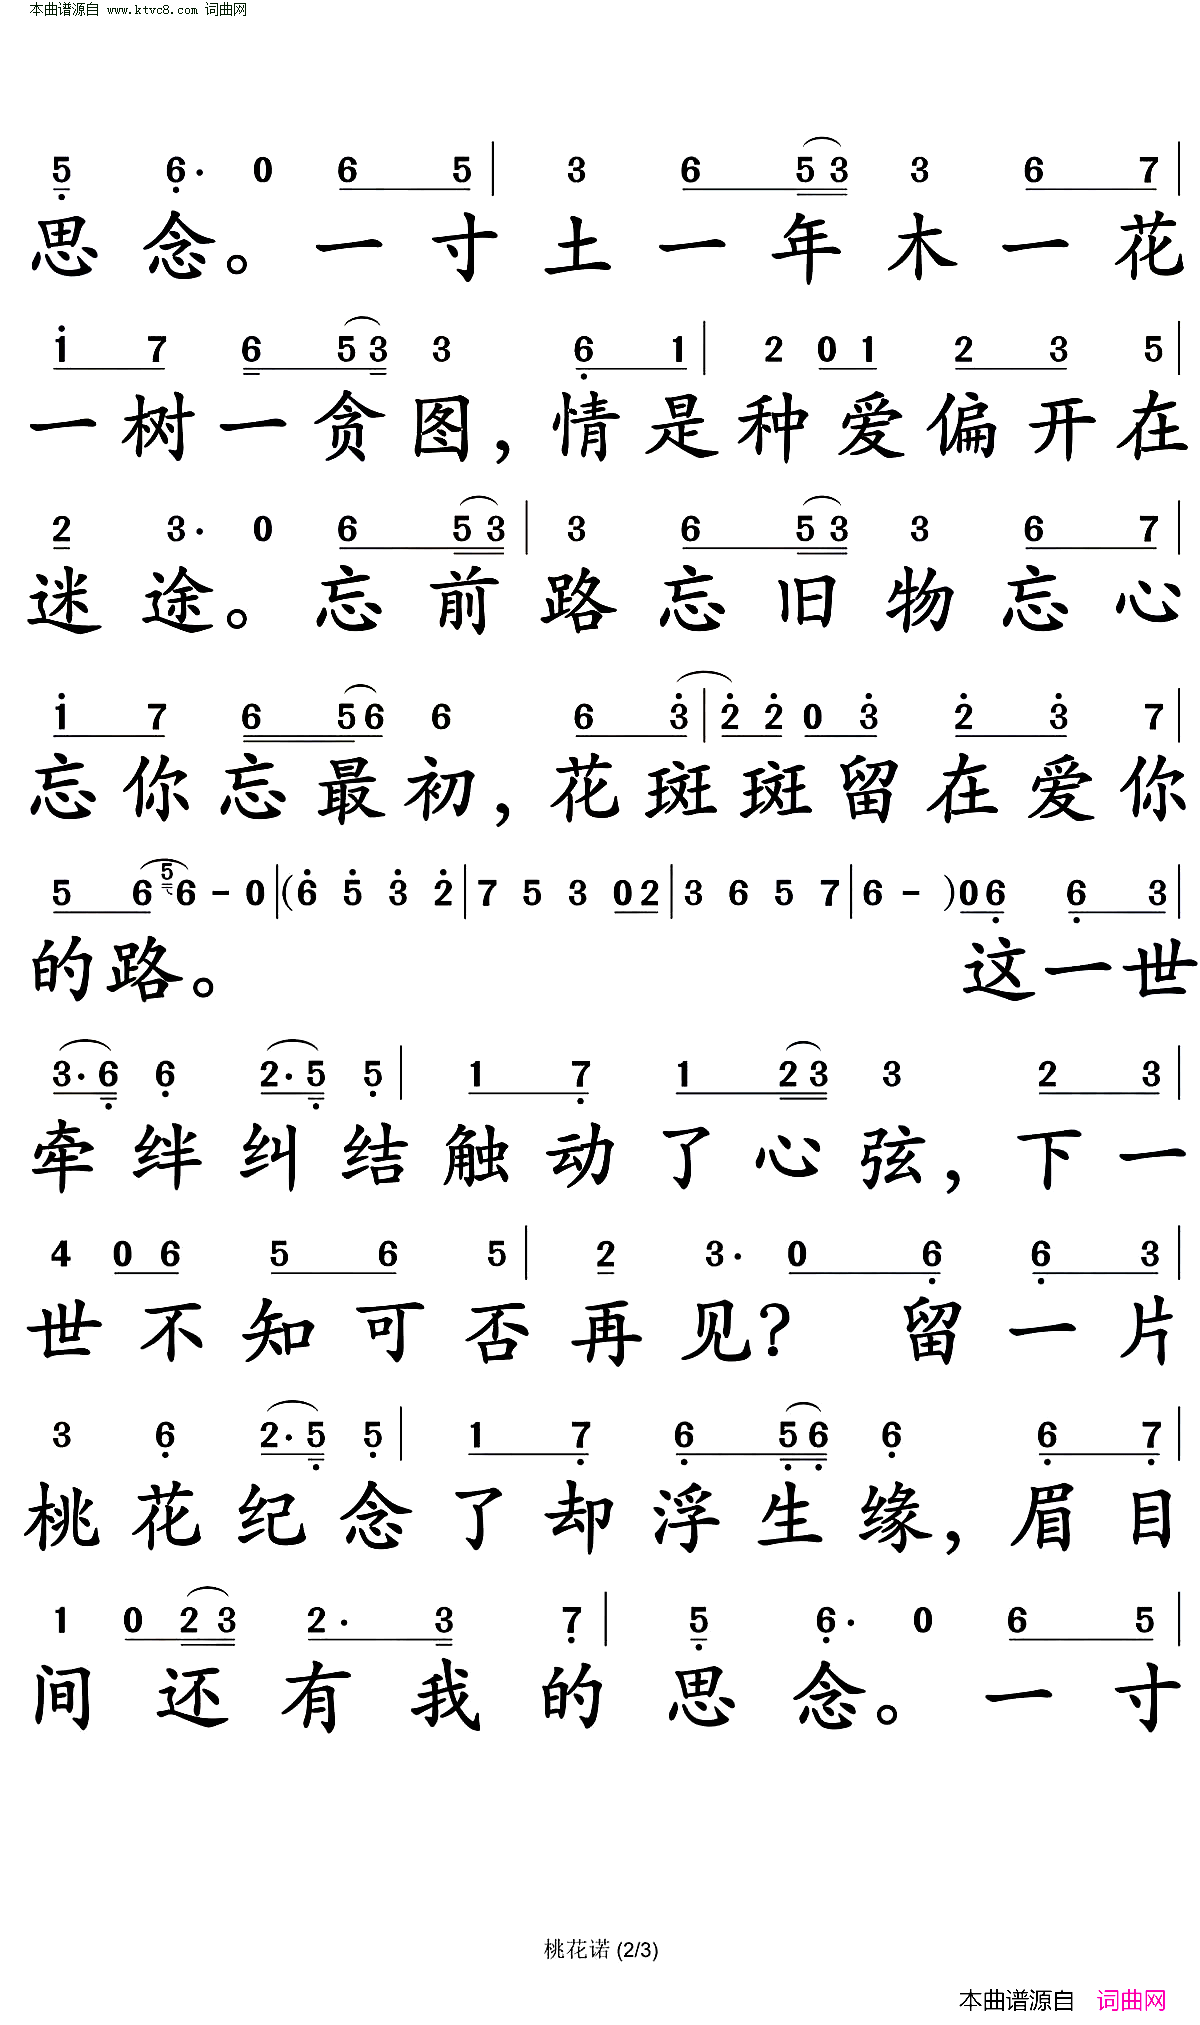 本曲谱源自 www.ktvc8.com 词曲网
5 6· 0 6 5 | 3 6 5 3 3 6 7 |
思念。一寸土一年木一花
1 7 6 5 3 3 6 1 | 2 0 1 2 3 5 |
一树一贪图，情是种爱偏开在
2 3· 0 6 5 3 | 3 6 5 3 3 6 7 |
迷途。忘前路忘旧物忘心
1 7 6 5 6 6 6 3 | 2 2 0 3 2 3 7 |
忘你忘最初，花斑斑留在爱你
5 6 5 6 - 0 | ( 6 5 3 2 | 7 5 3 0 2 | 3 6 5 7 | 6 - ) 0 6 6 3 |
的路。 这一世
3· 6 6 2· 5 5 | 1 7 1 2 3 3 2 3 |
牵绊纠结触动了心弦，下一
4 0 6 5 6 5 | 2 3· 0 6 6 3 |
世不知可否再见？ 留一片
3 6 2· 5 5 | 1 7 6 5 6 6 6 7 |
桃花纪念了却浮生缘，眉目
1 0 2 3 2· 3 7 | 5 6· 0 6 5 |
间还有我的思念。一寸
桃花诺 (2/3)
本曲谱源自 词曲网